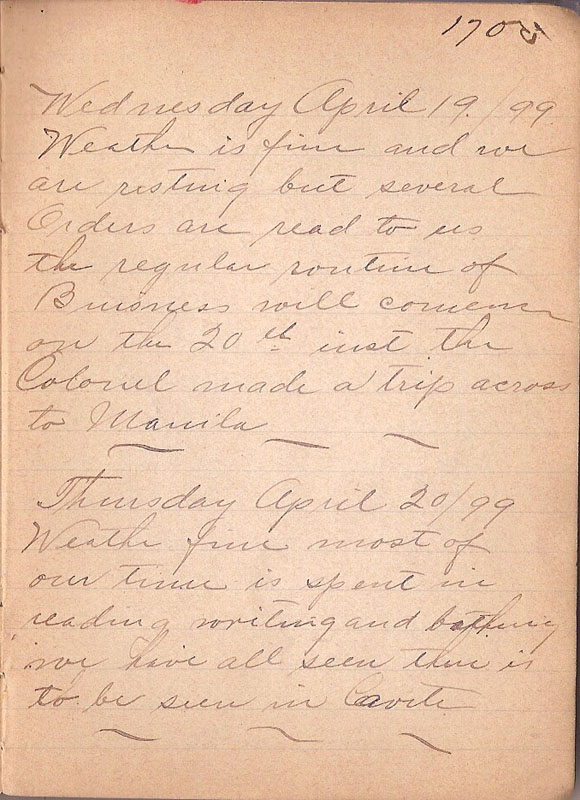 170
Wednesday April 19./99
Weather is fine and we
are resting but several
Orders are read to us
the regular routine of
Buisness will comence
on the 20th inst the
Colonel made a trip across
to Manila
Thursday April 20/99
Weathe fine most of
our time is spent in
reading writing and bathing
we have all seen there is
to be seen in Cavite